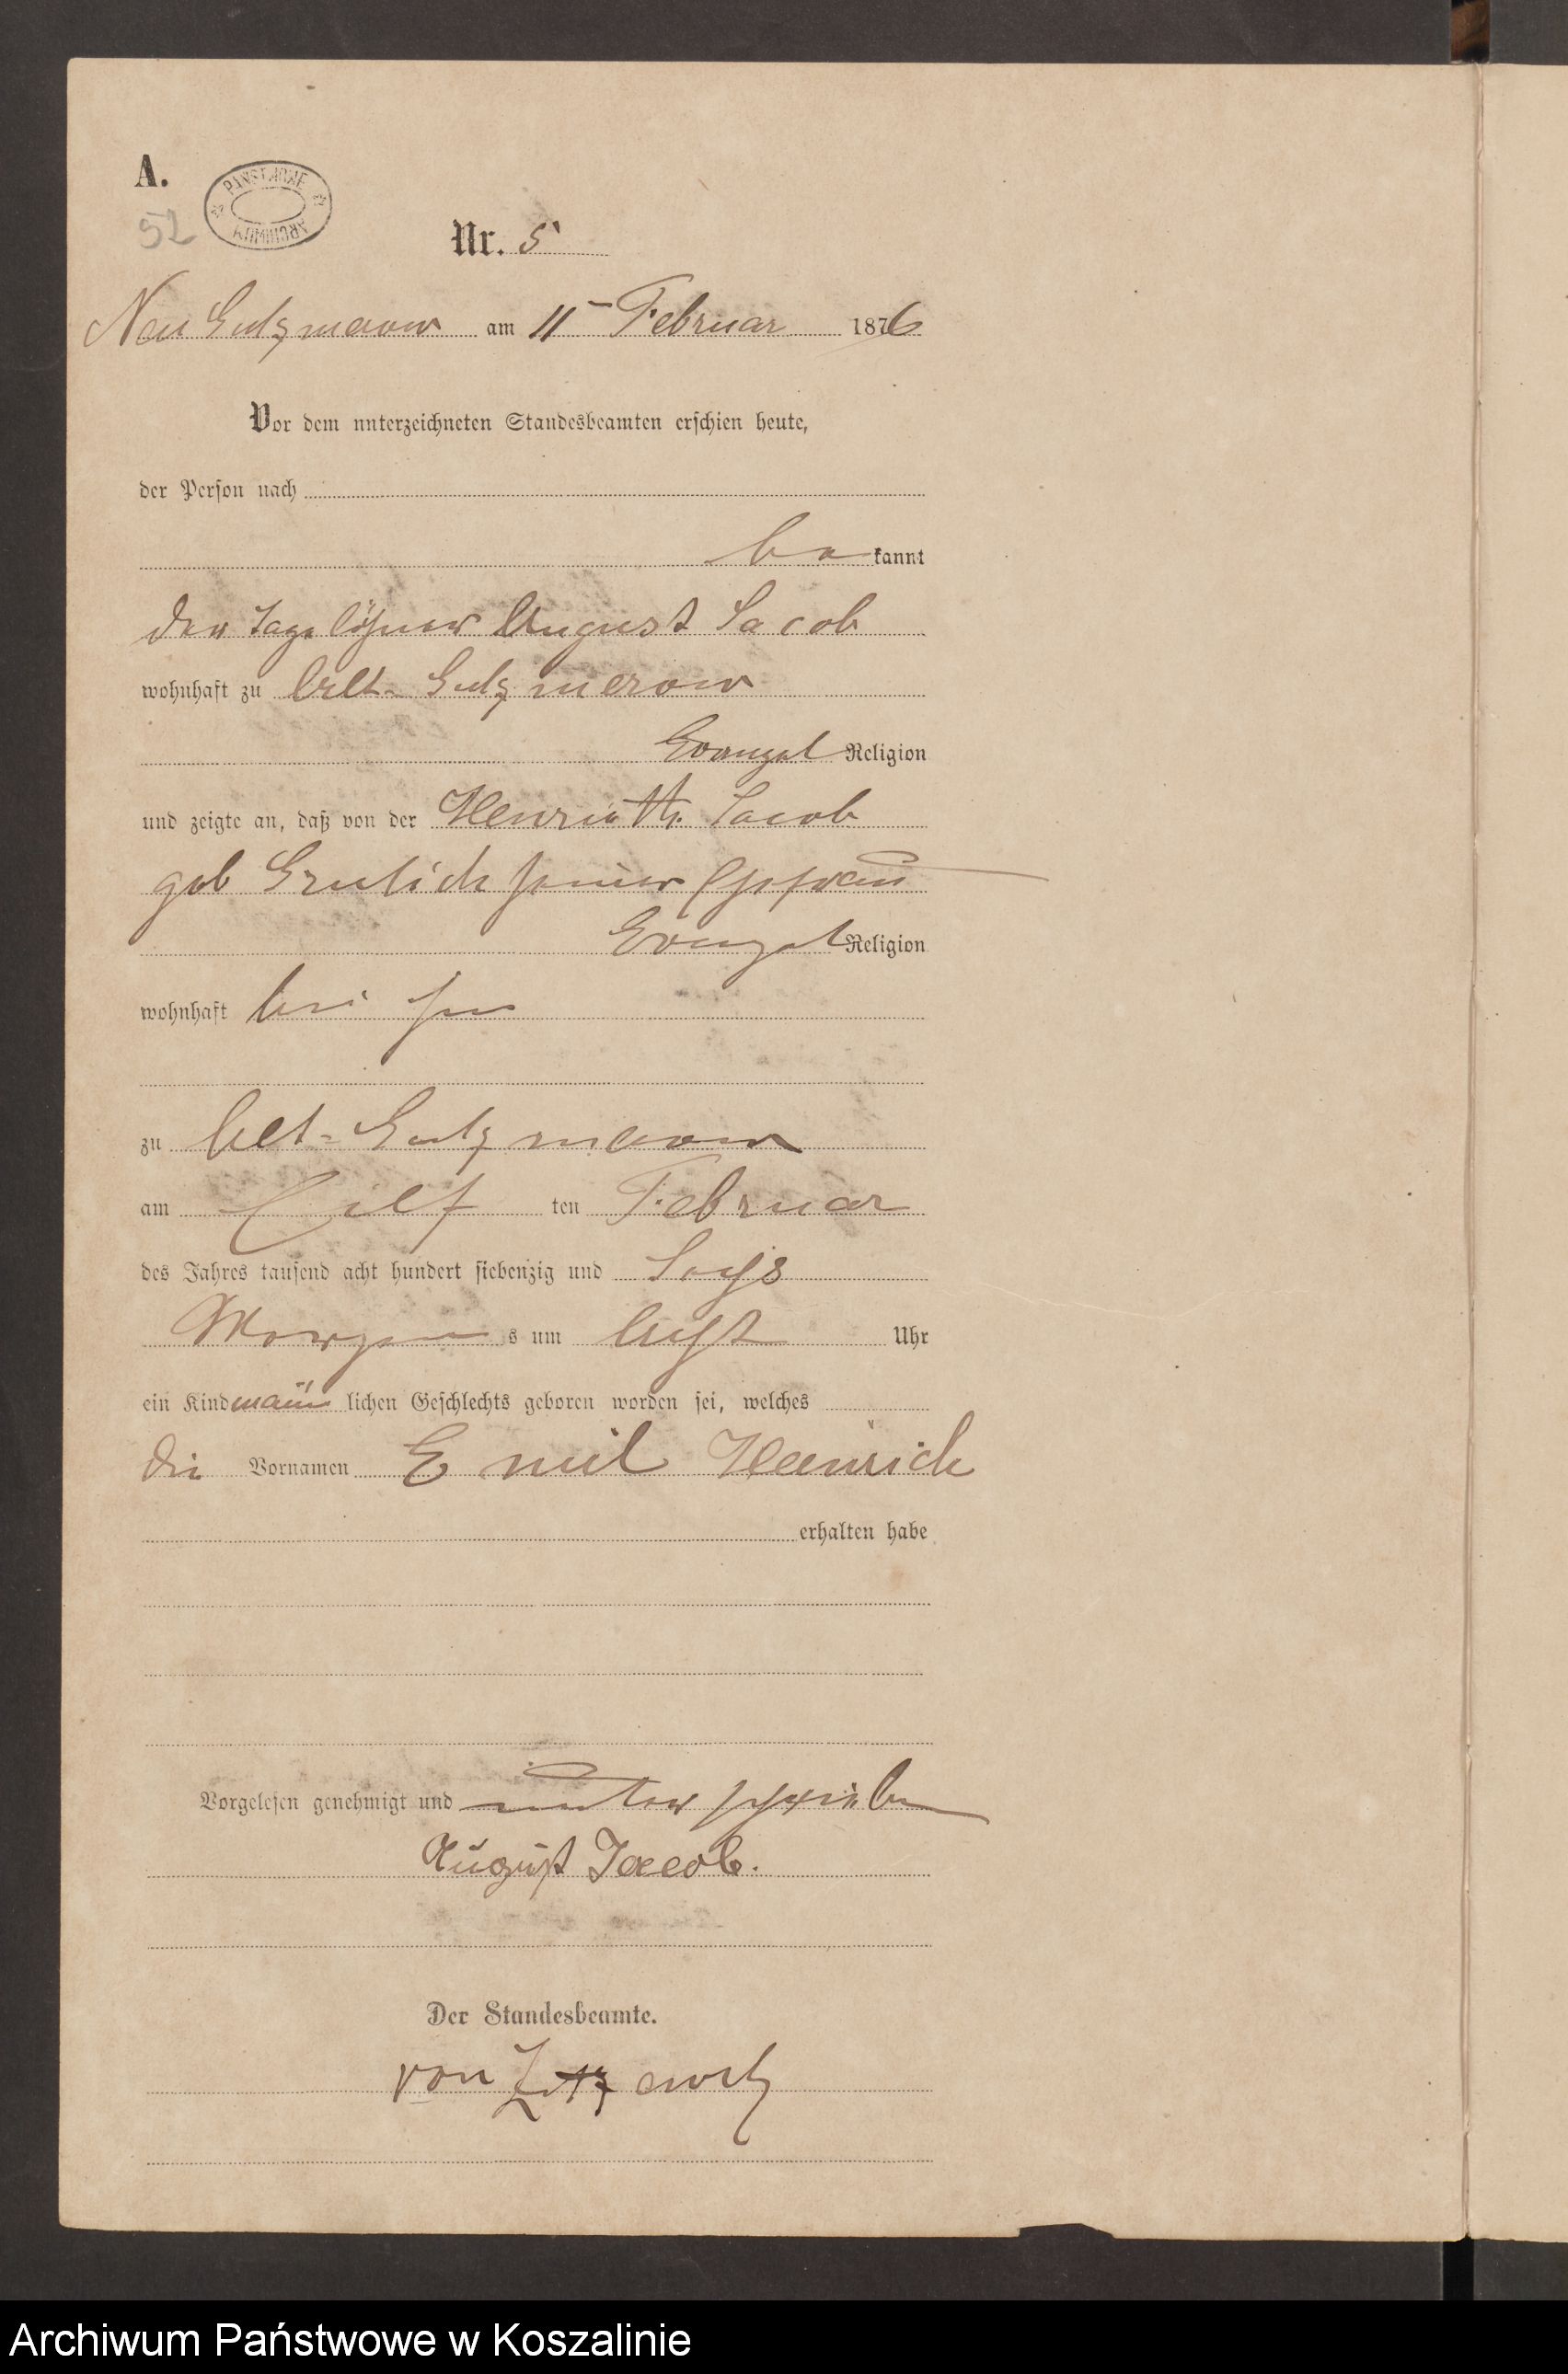 A.
PAŃSTWOWE
ARCHIWUM
52
Nr. 5
Neu Gutzmerow am 11ten Februar 1876
Vor dem unterzeichneten Standesbeamten erschien heute,
der Person nach
be kannt
der Tagelöhner August Jacob
wohnhaft zu Alt- Gutzmerow
Evangel Religion
und zeigte an, daß von der Henriette Jacob
geb Grulich seiner Ehefrau
Evangel Religion
wohnhaft bei ihm
zu Alt- Gutzmerow
am Eilf ten Februar
des Jahres tausend acht hundert siebenzig und Sechs
Morgen s um Acht Uhr
ein Kind männ lichen Geschlechts geboren worden sei, welches
die Vornamen Emil Heinrich
erhalten habe
Vorgelesen genehmigt und unterschrieben
August Jacob.
Der Standesbeamte.
von Zitzewitz
Archiwum Państwowe w Koszalinie